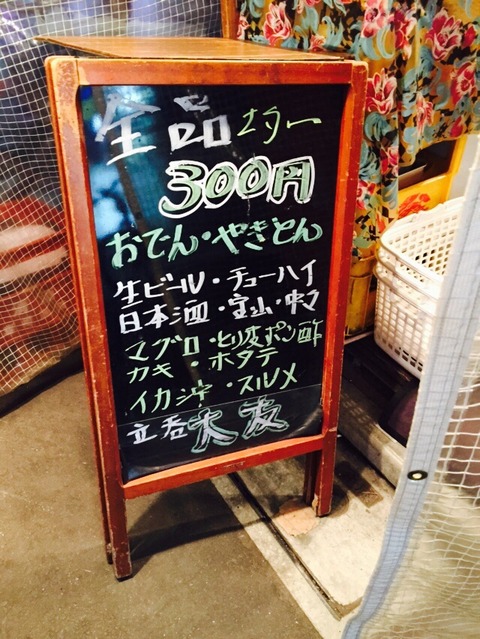 全品
300円
おでん・やきとん
生ビール・チューハイ
日本酒・宝山・中々
マグロ・とり皮ポン酢
カキ・ホタテ
イカ沖・スルメ
立呑